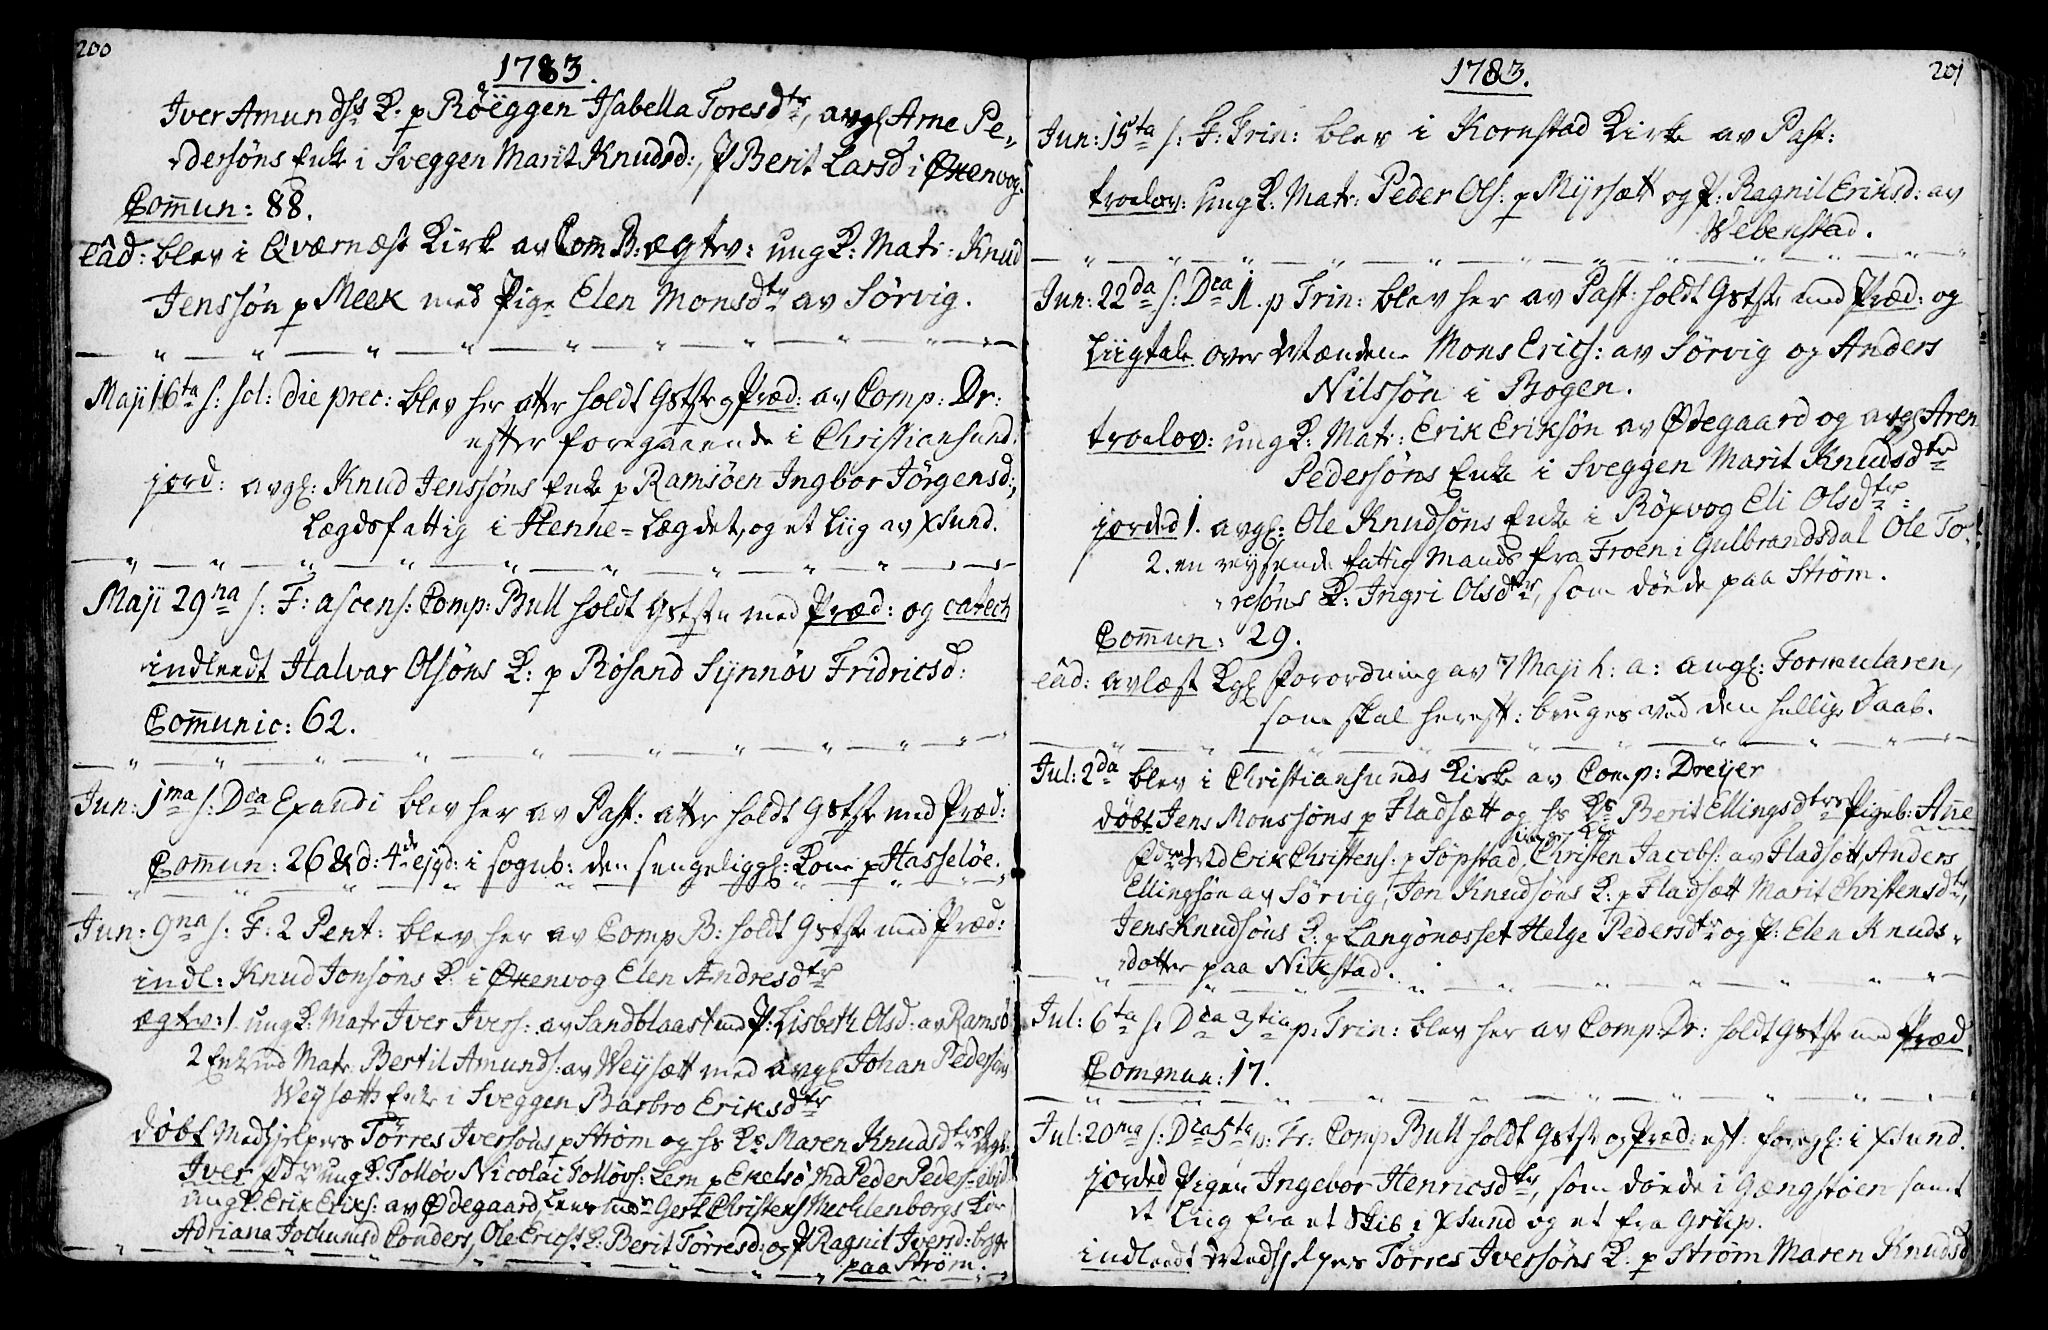 200
1783.
Iver Amunds: K. p Röeggen Isabella Toresdtr, avgl Arne Pe-
dersöns Enke i Sveggen Marit Knudsd:, P Berit Larsd i Øxenvog.
Comun: 88.
eâd: blev i Qværnæss Kirk av Com B: ægtv: ung K: Mats: Knud
Jenssön p Meek med Pige Elen Monsdtr av Sörvig.
Maji 16ta s: sol: die prec: blev her atter holdt Gstste og Præd: av Comp: Dr:
efter foregaaende i Christiansund.
jord: avgl: Knud Jenssöns Enke p Ramsöen Ingbor Jörgensd:,
Lægdsfattig i Henne-Lægdet, og et Liig av Xsund.
Maji 29na s: F: ascens: Comp: Bull holdt Gstste med Præd: og catech
indleedt Halvar Olsöns K: p Rösand Synnöv Fridricsd:
Comunic: 62.
Jun: 1ma s: Dca Exaudi blev her av Past: atter holdt Gstste med Præd:
Comun: 26 & d: 4de ejsd: i sognb: den sengeliggl: Kone p Hasselöe.
Jun: 9na s: F: 2 Pent: blev her av Comp B: holdt Gstste med Præd:
indl: Knud Jonsöns K: i Øxenvog Elen Andresdtr
ægtv: 1. ung K: Matr Iver Ivers: av Sandblaast med P: Lisbeth Olsd: av Ramsö
2 Enkemd Matr. Bertil Amunds: av Weysætt med avgl Johan Pedersöns
Weysætts Enke i Sveggen Barbro Eriksdtr
döbt Medhjelpers Törres Iversöns p Ström og hs Ks Maren Knudsdtrs
Iver Fdre ung K. Tollöv Nicolai Tollövs: Lem p Ekelsö, Peder Peders:
ung K. Erik Eriks: av Ødegaard, Gert Christens Mechlenborgs
Adriana Jochumsd Conders, Ole Erics: K: Berit Törresd: og P Ragnil Iversd: begge
paa Ström.
1783.
201
Jun: 15ta s: F: Trin: blev i Kornstad Kirke av Past:
troelov: ung K: Matr: Peder Ols: p Myrsætt og P: Ragnil Eriksd: av
Webenstad.
Jun: 22da s: Dca 1. p Trin: blev her av Past: holdt Gstste med Præd: og
Liigtale over Mændene Mons Erics: av Sörvig og Anders
Nilssön i Bogen.
troelov: ung K: Matr: Erik Eriksön av Ødegaard og avgl Aren
Pedersöns Enke i Sveggen Marit Knudsdtr
jorded 1. avgl: Ole Knudsöns Enke i Röxvog Eli Olsdtr:
2. en reysende fattig Mands fra Froen i Gulbrandsdal Ole To-
resöns K: Ingri Olsdtr, som döede paa Ström.
Comun: 29.
eâd: avlæst Kgl Forordning av 7 Maji h: a: angl: Formularen,
som skal hereft: bruges ved den hellige Daab.
Jul: 2da blev i Christiansunds Kirke av Comp: Dreyer
döbt Jens Monssöns p Fladsætt og hs Ks Berit Ellingsdtrs Pigeb: Anne
Fdre Erik Christens: p Söpstad, ung K. Christen Jacobs: av Fladsætt, Anders
Ellingsön av Sörvig, Jon Knudsöns K: p Fladsætt Marit Christensdtr,
Jens Knudsöns K: p Langönæsset Helge Pedersdtr og P: Elen Knuds-
dotter paa Nikstad.
Jul: 6ta s: Dca 3tia p: Trin: blev her av Comp: Dr: holdt Gstste med Præd.
Commun: 17.
Jul: 20ma s: Dca 5ta p: Tr: Comp Bull holdt Gstste og Præd: eft: foregl: i Xsund.
jorded Pigen Ingebor Henricsdtr, som döede i Gængstöen samt
et Liig fra et Skib i Xsund og et fra Grüp.
indleedt Medhjelpers Törres Iversöns K. p Ström Maren Knudsd